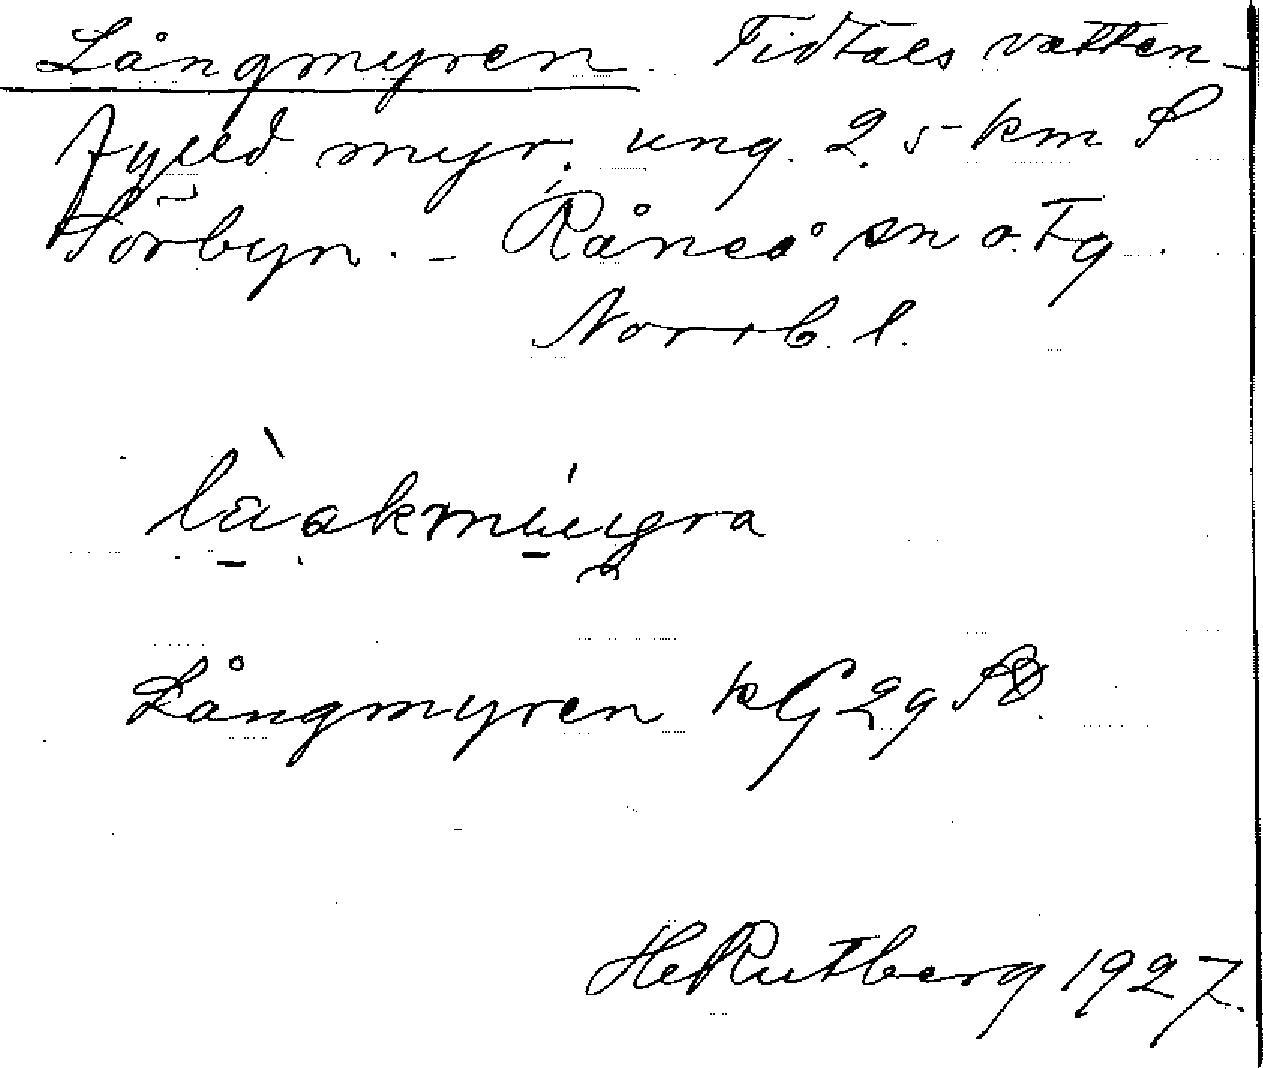 Långmyren. Tidtals vatten-
fylld myr, ung. 2,5 km S
Sörbyn. - Råneå sn o. Tg.
Norrb. l.
Långmyren kG 29 SO.
HeRutberg 1927.